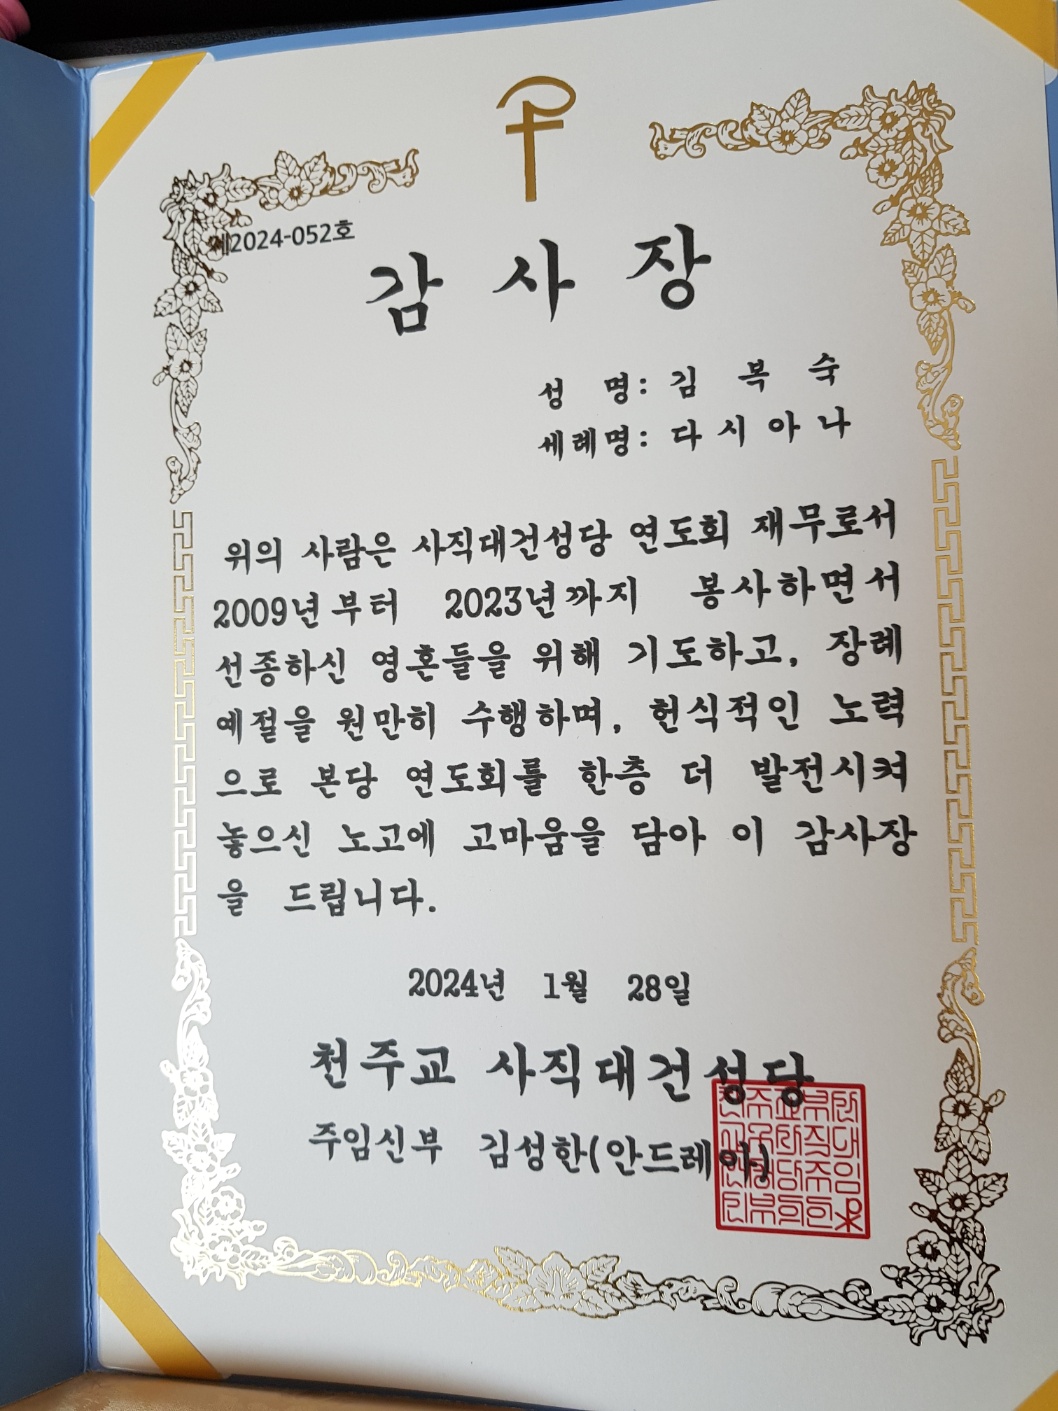 제2024-052호
감 사 장
성 명: 김 복 숙
세례명: 다 시 아 나
위의 사람은 사직대건성당 연도회 재무로서
2009년 부터 2023년까지 봉사하면서
선종하신 영혼들을 위해 기도하고, 장례
예절을 원만히 수행하며, 헌식적인 노력
으로 본당 연도회를 한층 더 발전시켜
놓으신 노고에 고마움을 담아 이 감사장
을 드립니다.
2024년 1월 28일
천주교 사직대건성당
주임신부 김성한(안드레아)